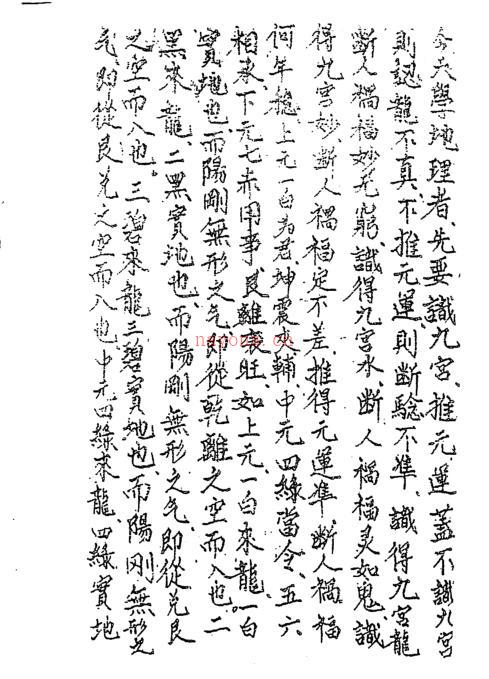 今夫學地理者、先要識九宮、推元運、蓋不識九宮
則認龍不真、不推元運、則斷驗不準、識得九宮龍
斷人禍福妙無窮、識得九宮水、斷人禍福灵如鬼、識
得九宮妙、斷人禍福定不差、推得元運準、斷人禍福
何年穩、上元一白為君坤震夾輔中元四綠當令、五六
相夾、下元七赤用事、艮離衰旺如上元一白來龍、一白
實地也、而陽剛無形之气、即從乾離之空而入也、二
黑來龍、二黑實地也、而陽剛無形之气、即從兑艮
之空而入也、三碧來龍三碧實地也、而陽剛無形之
气、即從艮兑之空而入也、中元四綠來龍、四綠實地